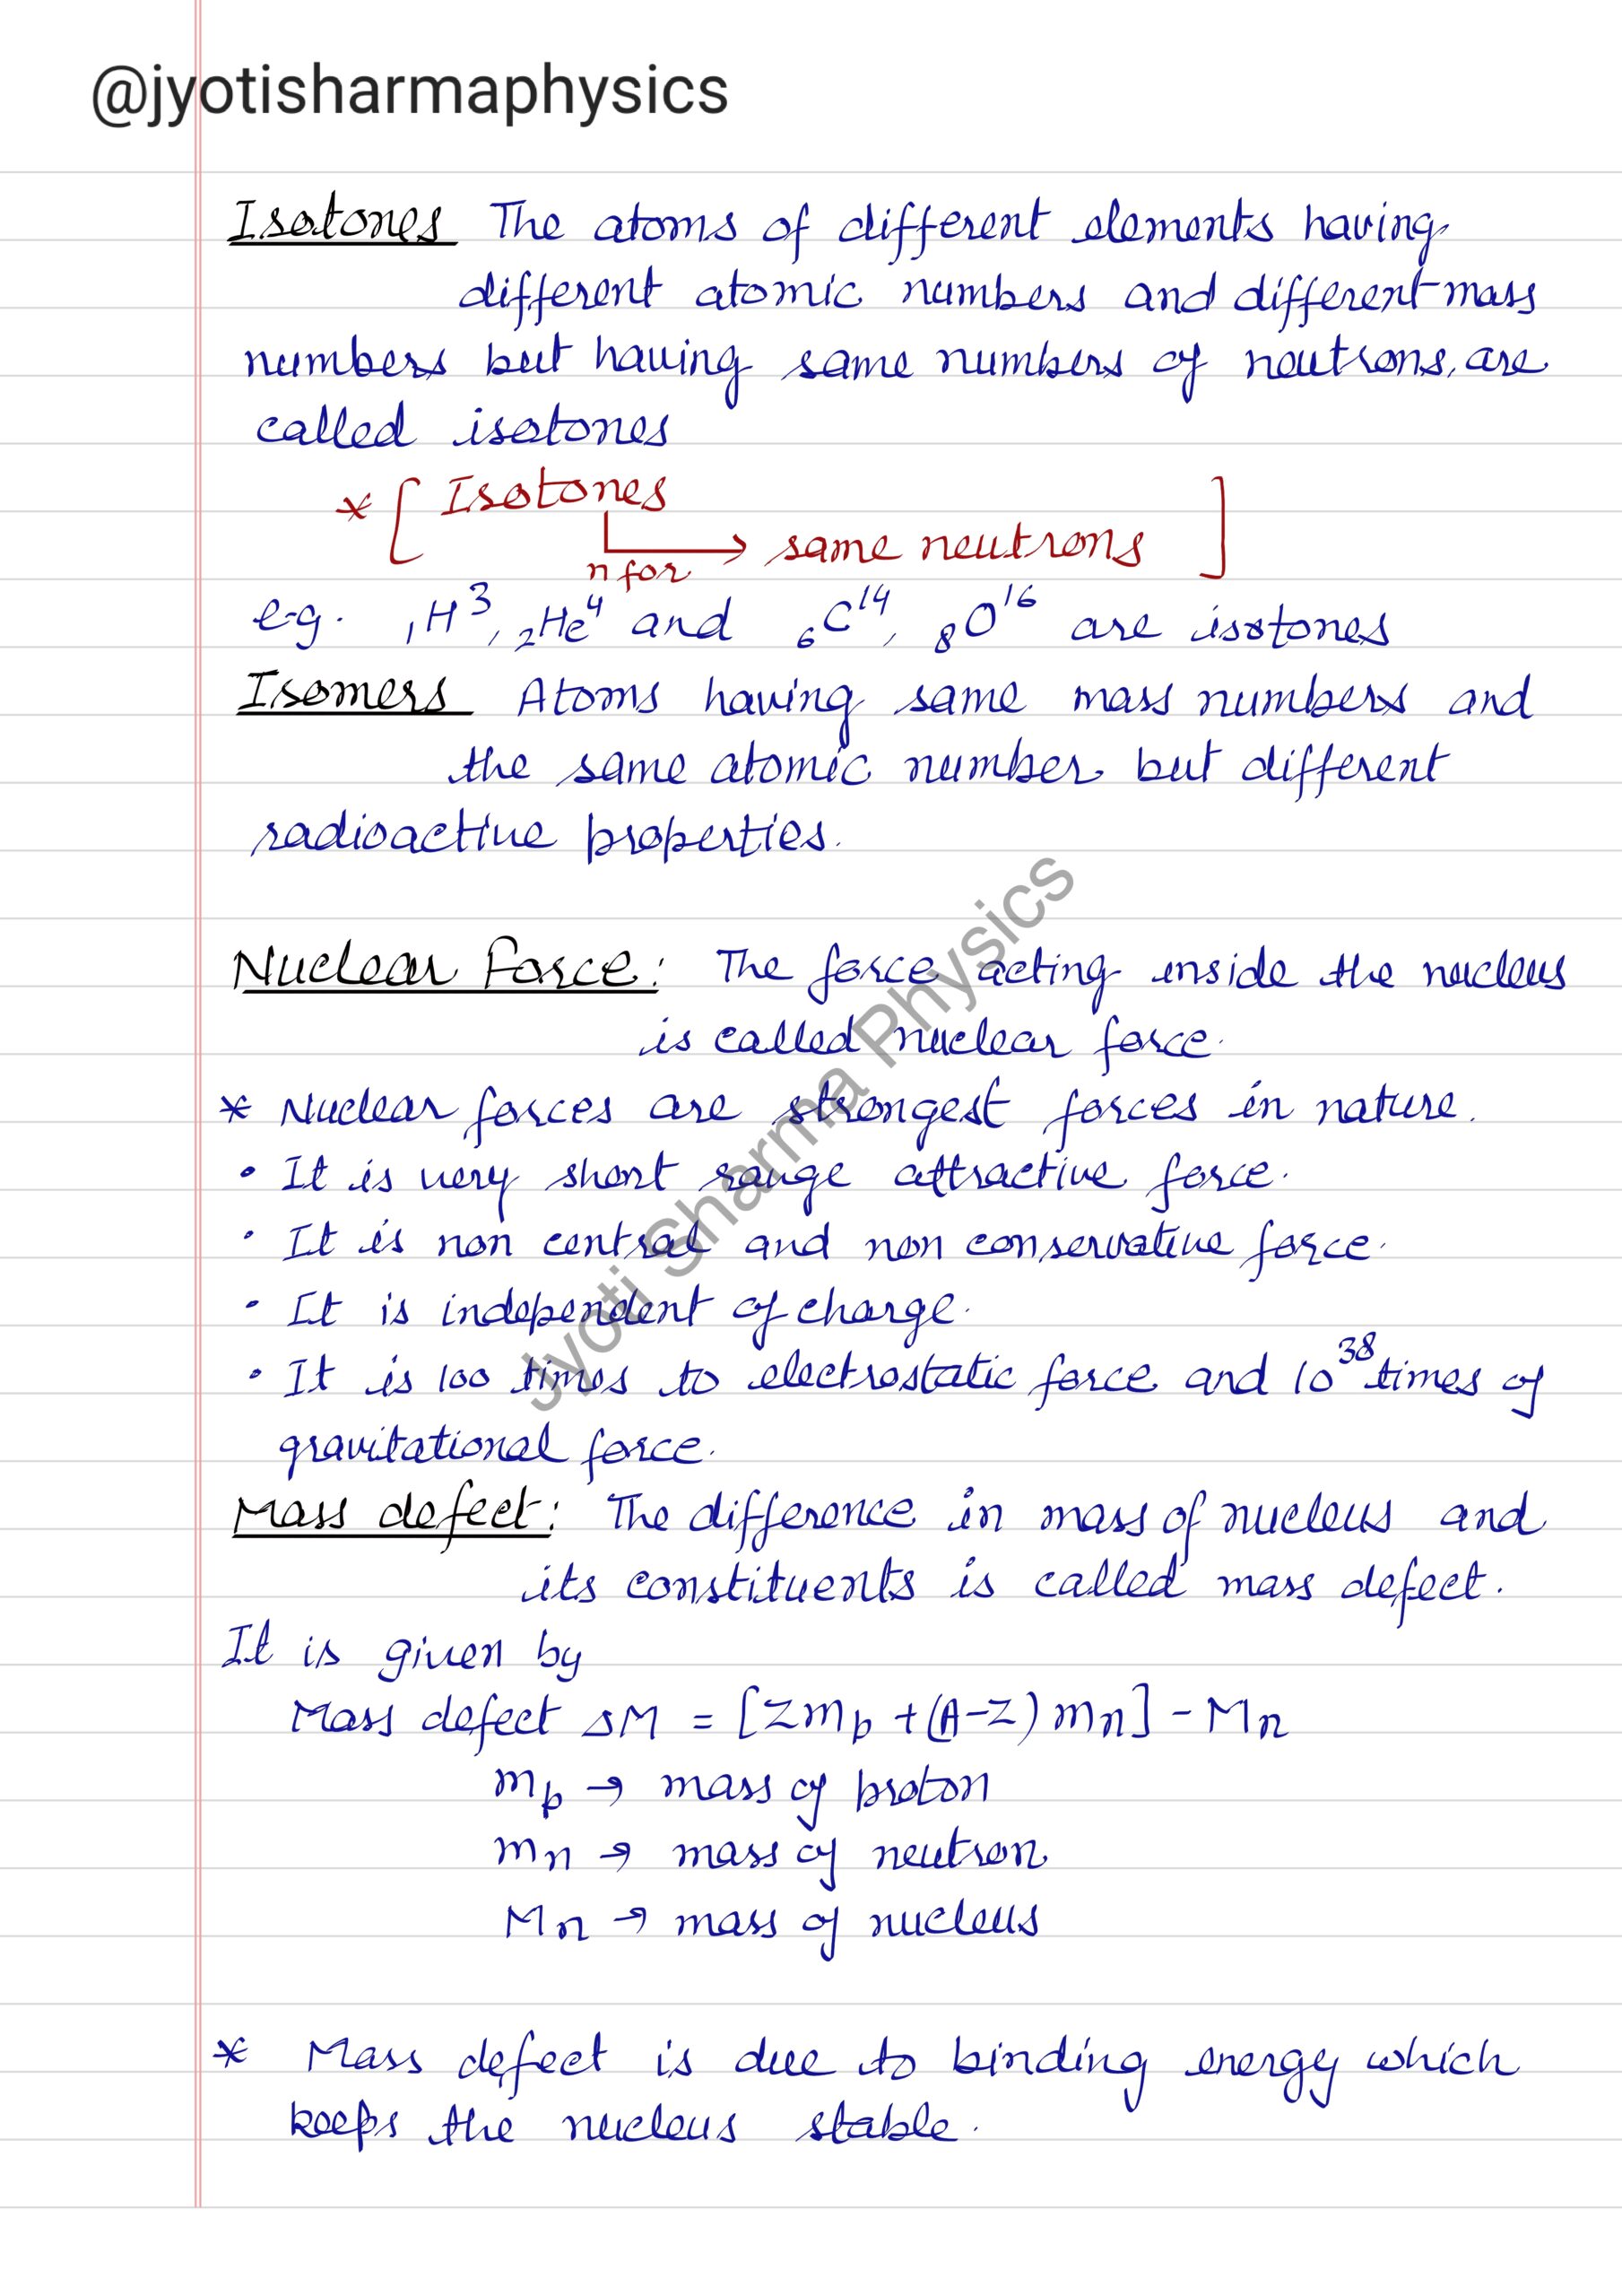 @jyotisharmaphysics
Isotones The atoms of different elements having
different atomic numbers and different mass
numbers but having same numbers of neutrons, are
called isotones
* [ Isotones
n for → same neutrons ]
e.g. ₁H³, ₂He⁴ and ₆C¹⁴, ₈O¹⁶ are isotones
Isomers Atoms having same mass numbers and
the same atomic number but different
radioactive properties.
Nuclear Force: The force acting inside the nucleus
is called nuclear force.
* Nuclear forces are strongest forces in nature.
• It is very short range attractive force.
• It is non central and non conservative force.
• It is independent of charge.
• It is 100 times to electrostatic force and 10³⁸ times of
gravitational force.
Mass defect: The difference in mass of nucleus and
its constituents is called mass defect.
It is given by
Mass defect ΔM = [Zmp + (A-Z) mn] - Mn
mp → mass of proton
mn → mass of neutron
Mn → mass of nucleus
* Mass defect is due to binding energy which
keeps the nucleus stable.
Jyoti Sharma Physics